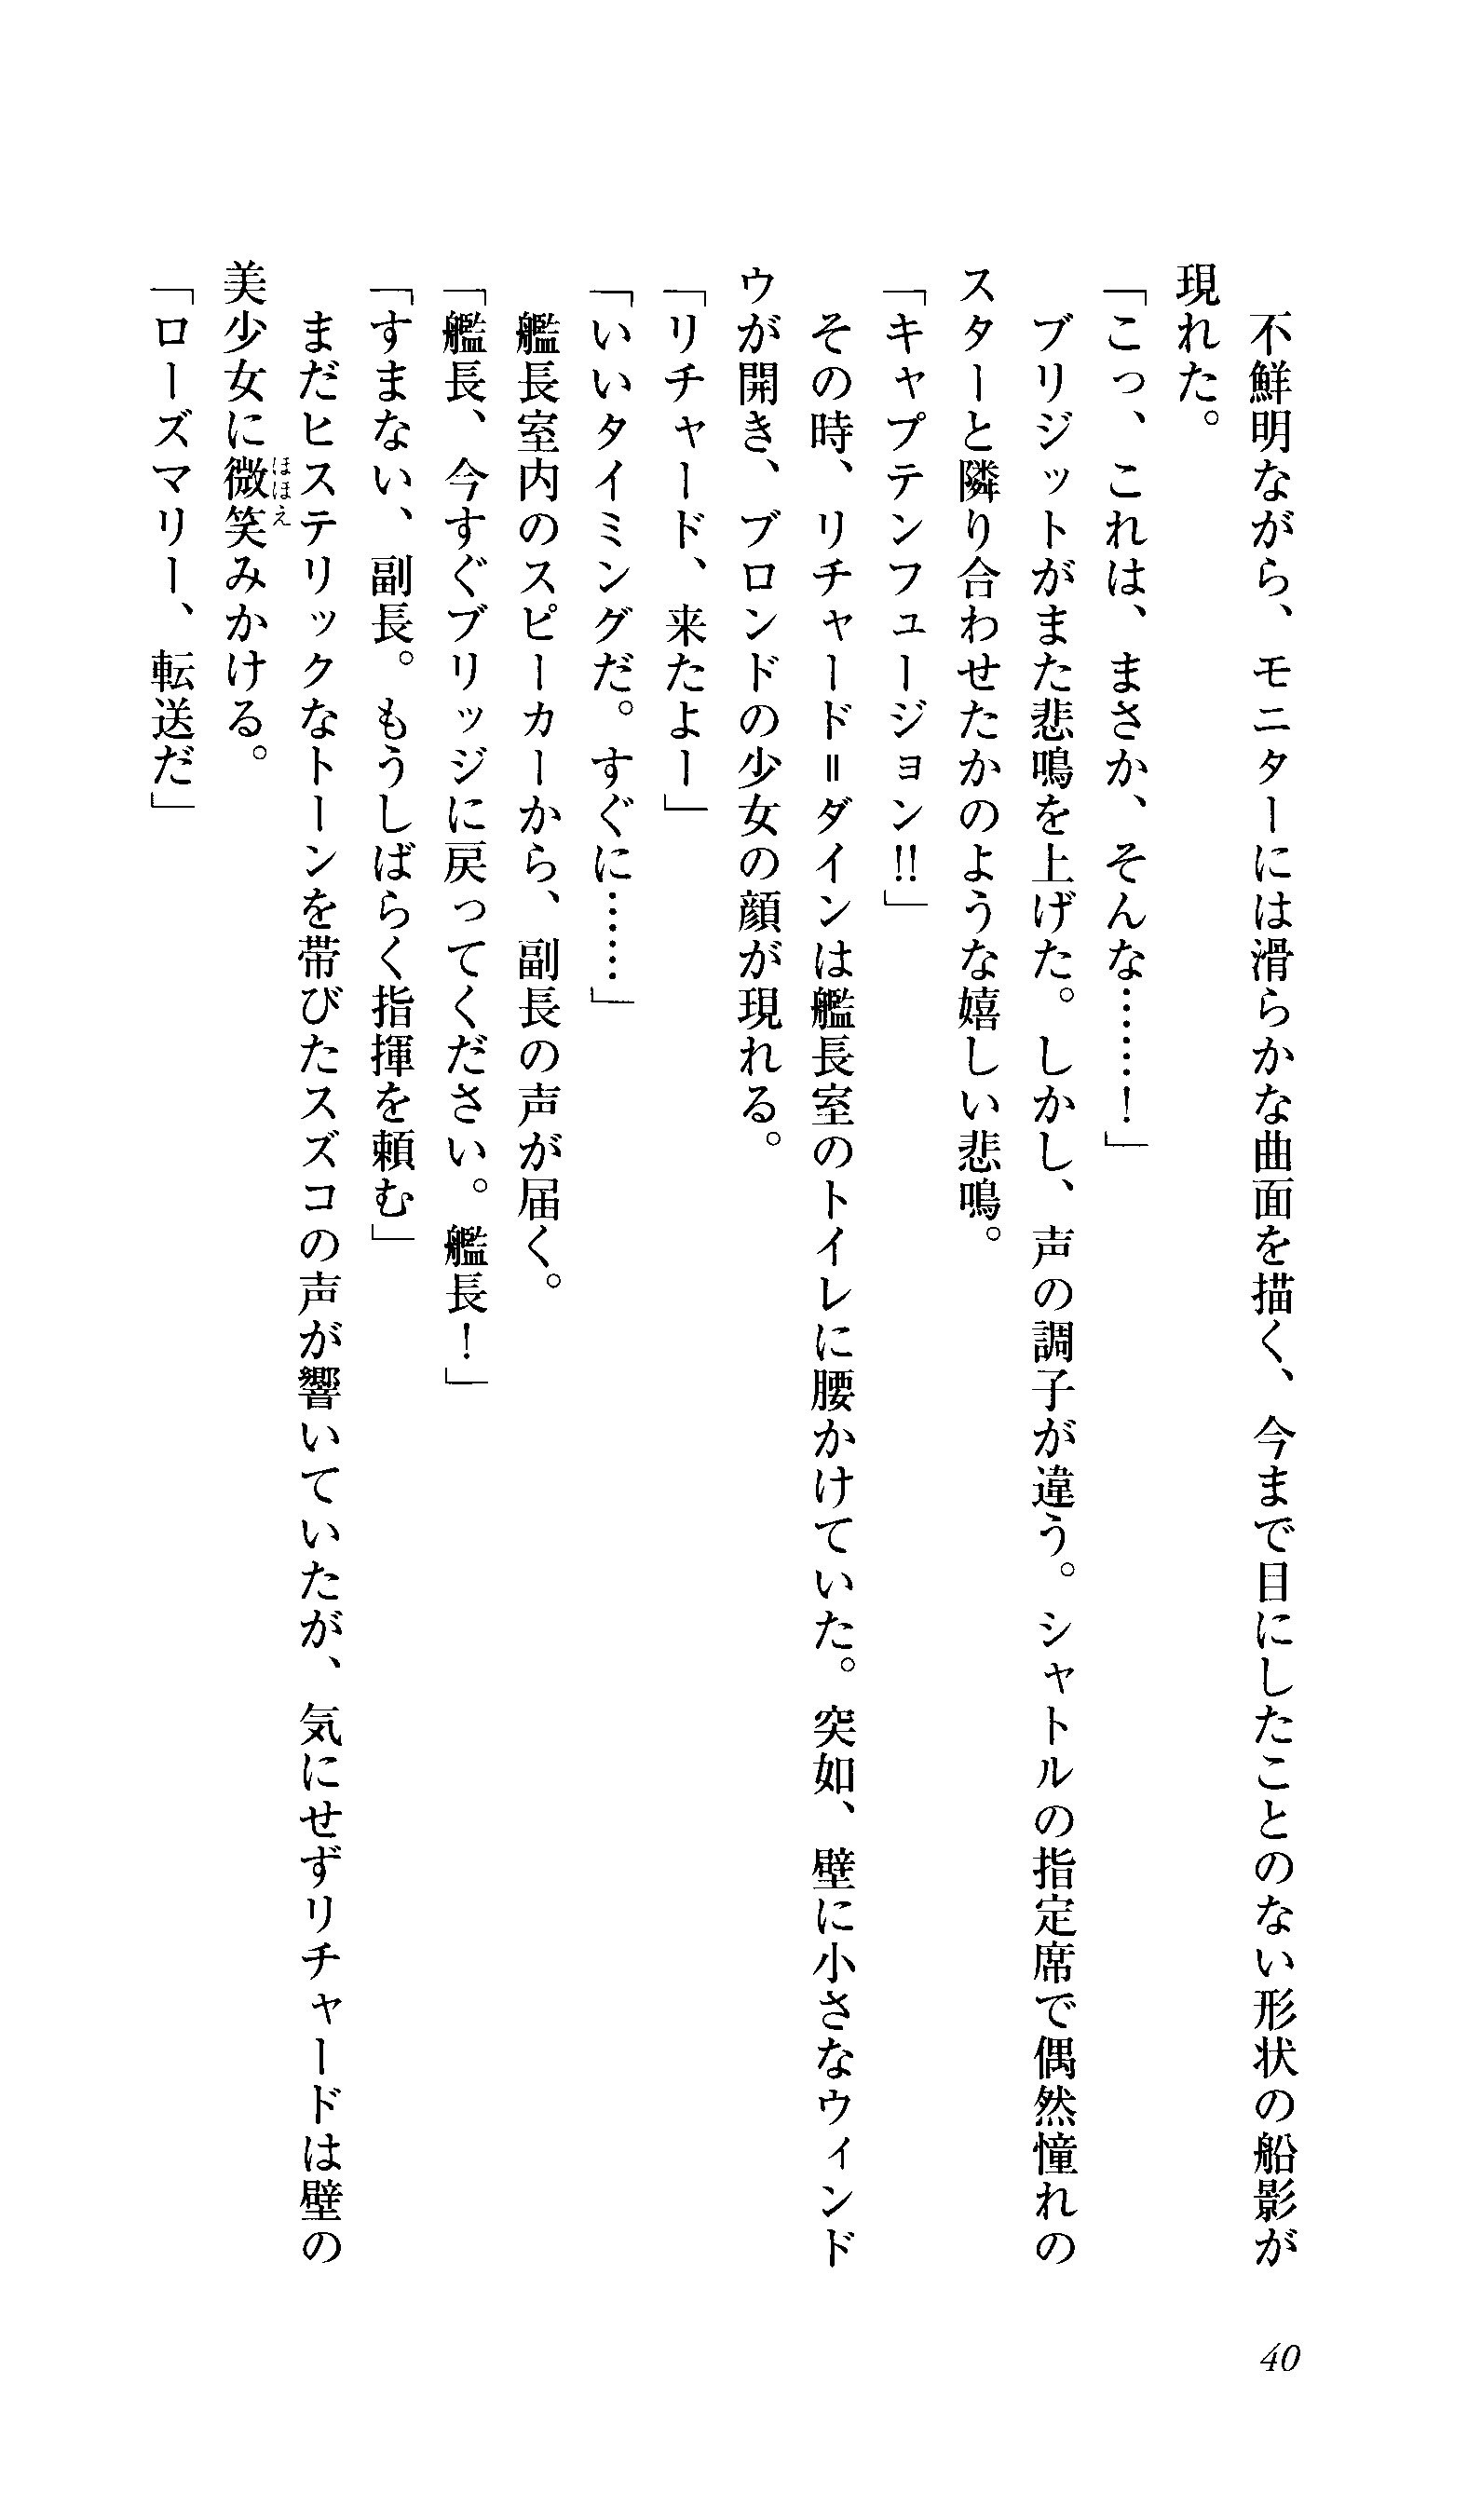 不鮮明ながら、モニターには滑らかな曲面を描く、今まで目にしたことのない形状の船影が
現れた。
「こっ、これは、まさか、そんな……！」
　ブリジットがまた悲鳴を上げた。しかし、声の調子が違う。シャトルの指定席で偶然憧れの
スターと隣り合わせたかのような嬉しい悲鳴。
「キャプテンフュージョン!!」
　その時、リチャード＝ダインは艦長室のトイレに腰かけていた。突如、壁に小さなウィンド
ウが開き、ブロンドの少女の顔が現れる。
「リチャード、来たよー」
「いいタイミングだ。すぐに……」
　艦長室内のスピーカーから、副長の声が届く。
「艦長、今すぐブリッジに戻ってください。艦長！」
「すまない、副長。もうしばらく指揮を頼む」
　まだヒステリックなトーンを帯びたスズコの声が響いていたが、気にせずリチャードは壁の
美少女に微笑みかける。
ほほえ
「ローズマリー、転送だ」
40